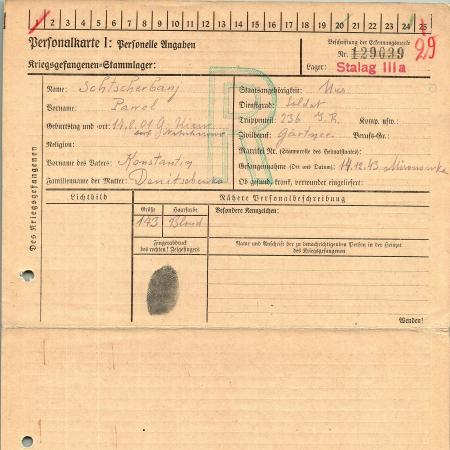 1 2 3 4 5 6 7 8 9 10 11 12 13 14 15 16 17 18 19 20 21 22 23 24 25
Personalkarte I: Personelle Angaben
Kriegsgefangenen-Stammlager:
Beschriftung der Erkennungsmarke
Nr. 129039
29
Lager: Stalag IIIa
R
Des Kriegsgefangenen
Name: Schtscherbanj
Vorname: Pawel
Geburtstag und -ort: 14.8.01
Religion:
Vorname des Vaters: Konstantin
Familienname der Mutter: Denitschenko
Staatsangehörigkeit:
Dienstgrad: Soldat
Truppenteil: 236 I.R. Komp. usw.:
Zivilberuf: Gärtner Berufs-Gr.:
Matrikel Nr. (Stammrolle des Heimatstaates):
Gefangennahme (Ort und Datum): 14.12.43
Ob gesund, krank, verwundet eingeliefert:
Lichtbild
Nähere Personalbeschreibung
Größe Haarfarbe Besondere Kennzeichen:
143 Blond
Fingerabdruck
des rechten! Zeigefingers
Name und Anschrift der zu benachrichtigenden Person in der Heimat
des Kriegsgefangenen
Wenden!